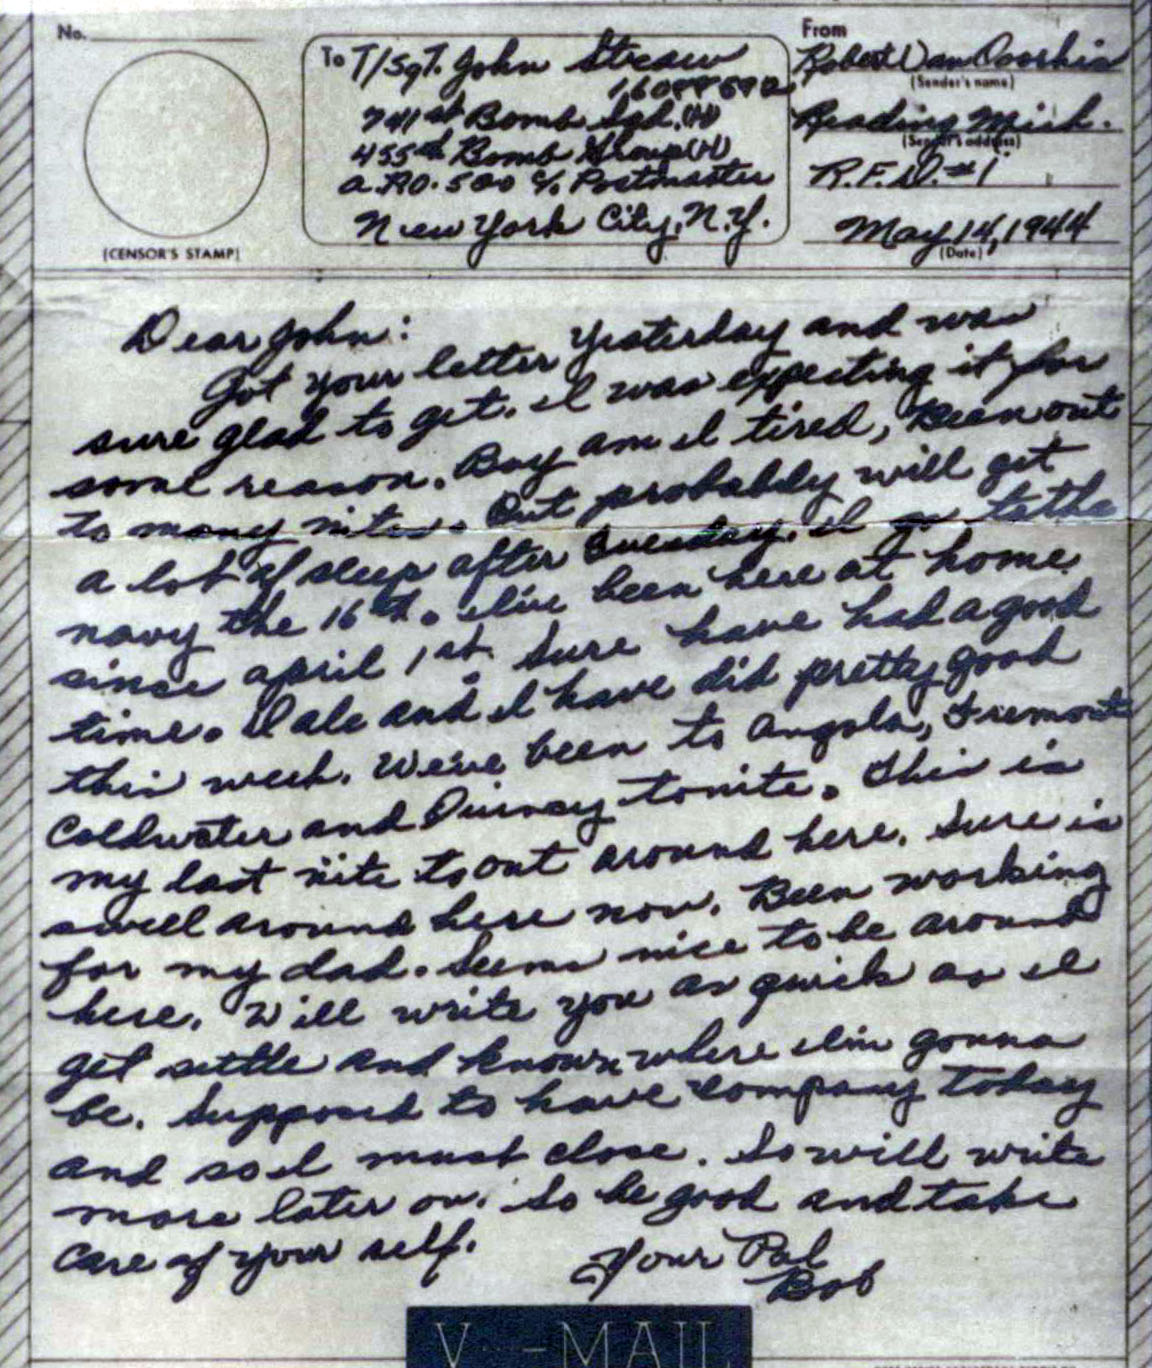 No.
(CENSOR'S STAMP)
To T/Sgt. John Straw
741st Bomb. Sqd. (H)
455th Bomb Group (H)
A.P.O. 500 c/o Postmaster
New York City, N.Y.
From
Robert Van
(Sender's name)
Reading Mich.
(Sender's address)
R.F.D. #1
May 14, 1944
(Date)
Dear John:
Got your letter yesterday and was
sure glad to get. I was expecting it for
some reason. Boy am I tired, Been out
to many nites. But probably will get
a lot of sleep after Tuesday. I go to the
navy the 16th. I've been here at home
since april 1st. Sure have had a good
time. Dale and I have did pretty good
this week. We've been to Angola, Fremont
Coldwater and Quincy tonite. This is
my last nite to out around here. Sure is
swell around here now. Been working
for my dad. Seems nice to be around
here. Will write you as quick as I
get settle and known where I'm gonna
be. Supposed to have company today
and so I must close. So will write
more later on. So be good and take
care of your self.
Your Pal
Bob
V--MAIL